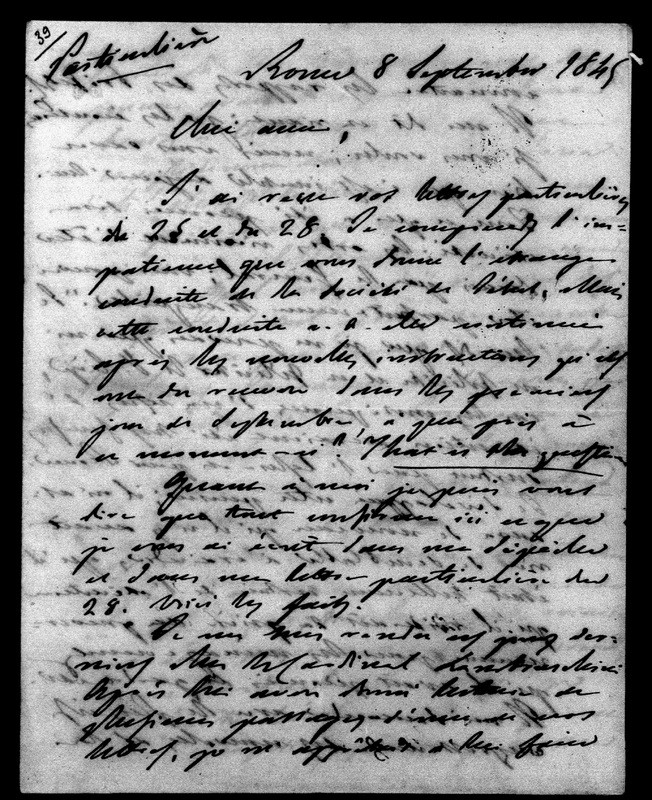 39
Particulière
Rome 8 Septembre 1845
Cher ami,
J'ai reçu vos lettres particulières
du 25 et du 28. Je comprends l'im-
patience que vous donne l'étrange
conduite de la Société de Mais
cette conduite a-t-elle continué
après les nouvelles instructions qu'ils
ont du recevoir dans les premiers
jours de Septembre, à peu près à
ce moment-ci? That is the question
Quant à moi je puis vous
dire que tout confirme ici ce que
je vous ai écrit dans ma dépêche
et dans ma lettre particulière du
28. Voici les faits.
Je me suis rendu ces jours der-
niers chez le Cardinal Lambruschini
Après lui avoir donné lecture de
plusieurs passages de vos
lettres, je m'apprêtais à lui faire